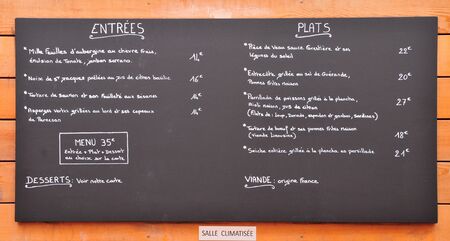 ENTRÉES
* Mille Feuilles d'aubergine au chevre frais,
émulsion de Tomate, jambon serrano. 14€
* Noix de St jacques poêlées au jus de citron 16€
* Tartare de saumon et son feuilleté aux sésames 14€
* Asperges vertes grillées au lard et ses copeaux
de Parmesan 14€
MENU 35€
Entrée + Plat + Dessert
au choix sur la carte
DESSERTS : Voir notre carte
PLATS
* Pièce de Veau sauce Forestière et ses
légumes du soleil 25€
* Entrecôte grillée au sel de Guérande,
Pommes frites maison 20€
* Parillada de poissons grillés à la plancha,
Aïoli maison, jus de citron 27€
(Plats de : Loup, Dorade, espadon et gambas, sardines)
* Tartare de bœuf et ses pommes frites maison
(viande Limousine) 18€
* Seiche entière grillée à la plancha en persillade 21€
VIANDE : origine France.
SALLE CLIMATISÉE